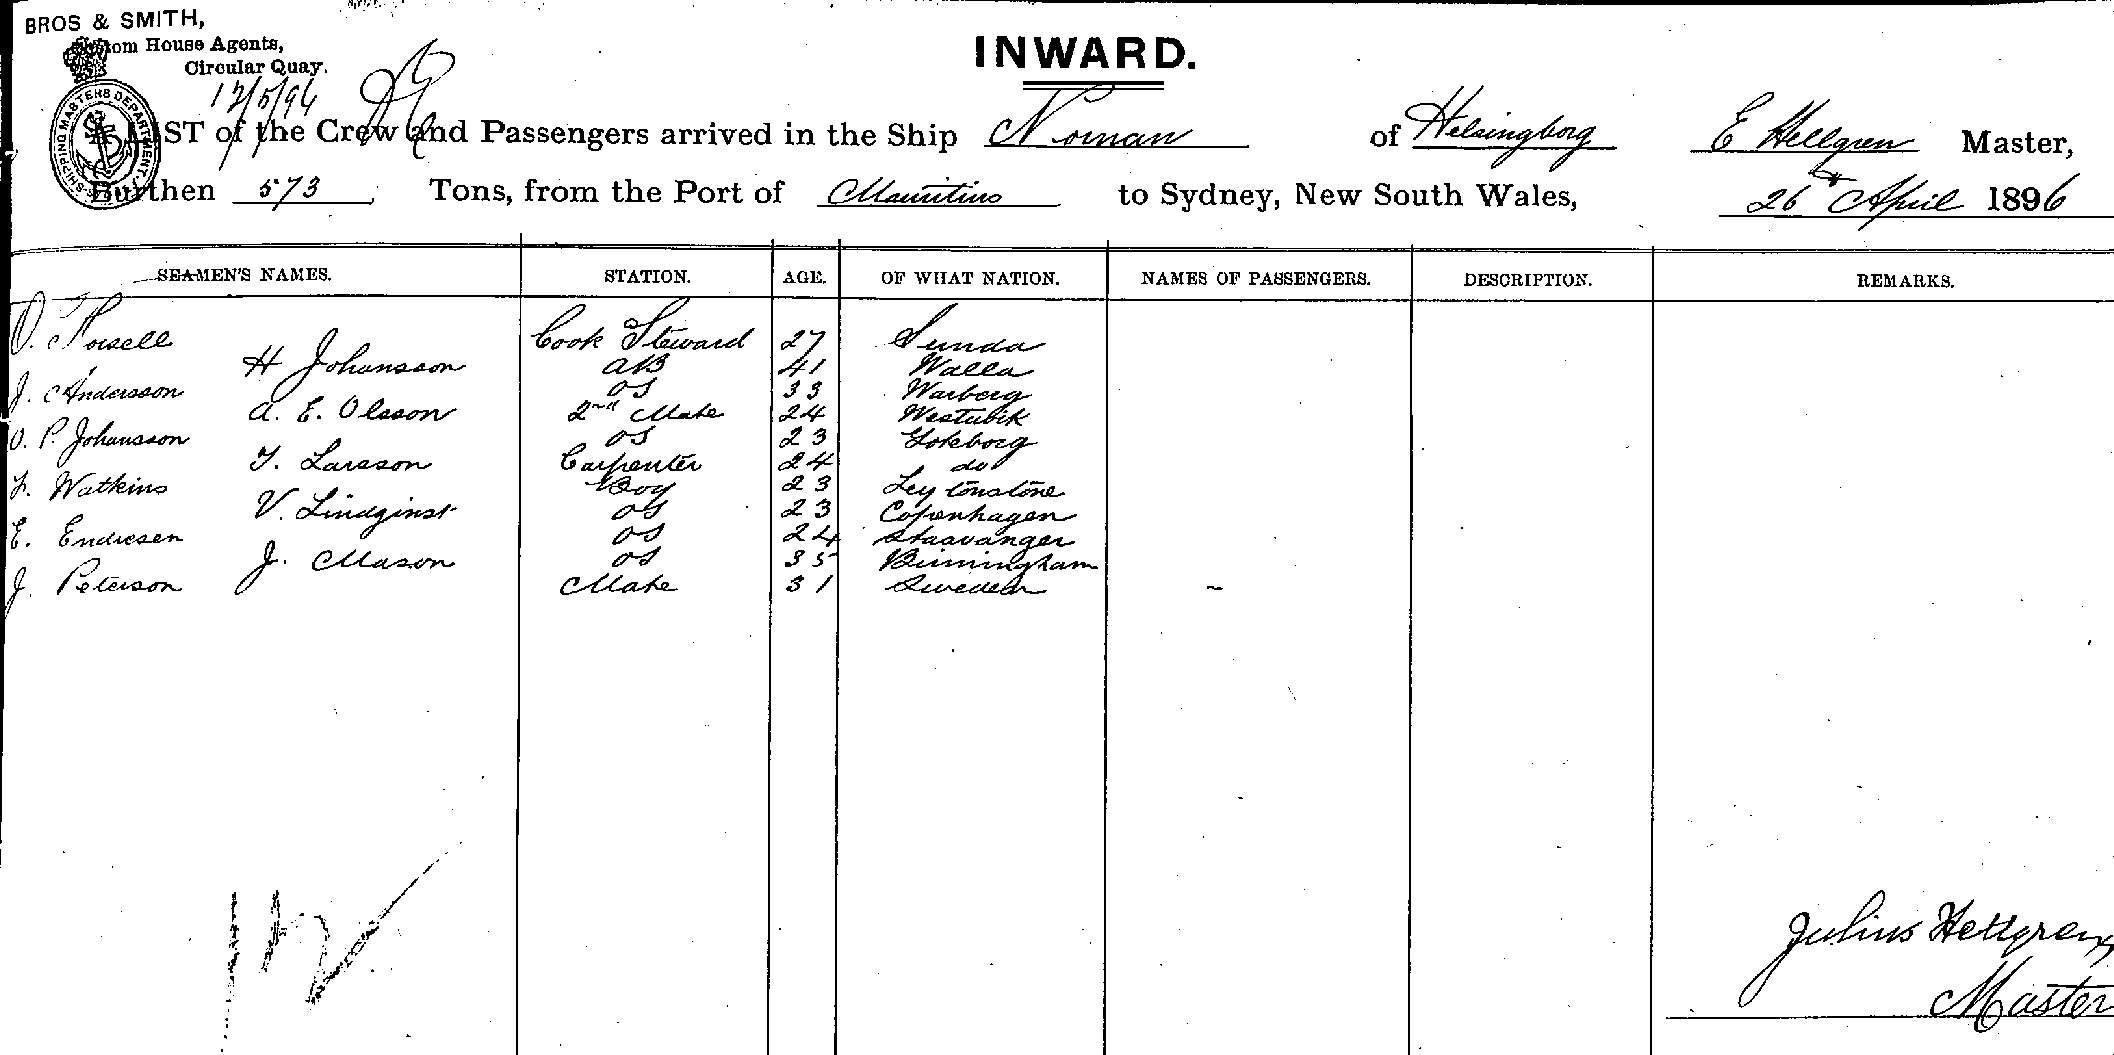 BROS & SMITH,
Custom House Agents,
Circular Quay.
INWARD.
SHIPPING MASTERS DEPARTMENT.
LIST of the Crew and Passengers arrived in the Ship Noman of Helsingborg E Hellgren Master,
Burthen 573 Tons, from the Port of Mauritius to Sydney, New South Wales, 26th April 1896
SEAMEN'S NAMES. STATION. AGE. OF WHAT NATION. NAMES OF PASSENGERS. DESCRIPTION. REMARKS.
Cook Steward 27 Sunda
H Johansson AB 41 Walla
J. Andersson OS 33 Warberg
A. E. Olsson 2nd Mate 24 Westubik
O. P. Johansson OS 23 Goteborg
T. Larsson Carpenter 24 do
Watkins Boy 23 Leytonstone
V. OS 23 Copenhagen
E. Endresen OS 24 Staavanger
J. Mason OS 35 Birmingham
J. Peterson Mate 31 Sweden
Julius Hellgren
Master